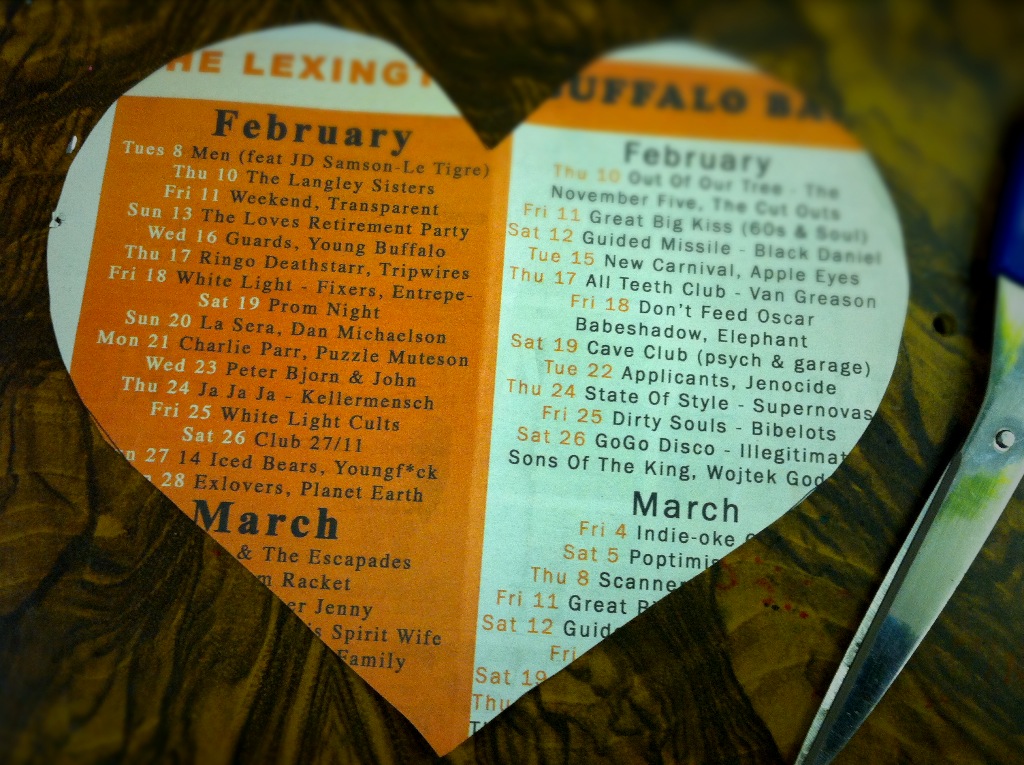 HE LEXINGT
February
Tues 8 Men (feat JD Samson-Le Tigre)
Thu 10 The Langley Sisters
Fri 11 Weekend, Transparent
Sun 13 The Loves Retirement Party
Wed 16 Guards, Young Buffalo
Thu 17 Ringo Deathstarr, Tripwires
Fri 18 White Light - Fixers, Entrepe-
Sat 19 Prom Night
Sun 20 La Sera, Dan Michaelson
Mon 21 Charlie Parr, Puzzle Muteson
Wed 23 Peter Bjorn & John
Thu 24 Ja Ja Ja - Kellermensch
Fri 25 White Light Cults
Sat 26 Club 27/11
n 27 14 Iced Bears, Youngf*ck
28 Exlovers, Planet Earth
March
& The Escapades
m Racket
er Jenny
is Spirit Wife
Family
BUFFALO BA
February
Thu 10 Out Of Our Tree - The
November Five, The Cut Outs
Fri 11 Great Big Kiss (60s & Soul)
Sat 12 Guided Missile - Black Daniel
Tue 15 New Carnival, Apple Eyes
Thu 17 All Teeth Club - Van Greason
Fri 18 Don't Feed Oscar
Babeshadow, Elephant
Sat 19 Cave Club (psych & garage)
Tue 22 Applicants, Jenocide
Thu 24 State Of Style - Supernovas
Fri 25 Dirty Souls - Bibelots
Sat 26 GoGo Disco - Illegitimat
Sons Of The King, Wojtek God
March
Fri 4 Indie-oke
Sat 5 Poptimis
Thu 8 Scanner
Fri 11 Great B
Sat 12 Guid
Fri
Sat 19
Thu
T